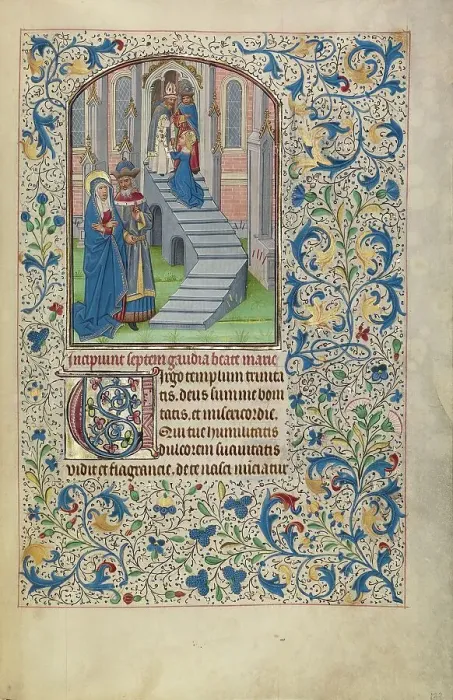 Incipiunt septem gaudia beate marie
Virgo templum trinita
tis. deus summe boni
tatis. et misericordie.
Qui tue humilitatis
dulcorem suauitatis
vidit et flagrancie. de te nasci nunciatur